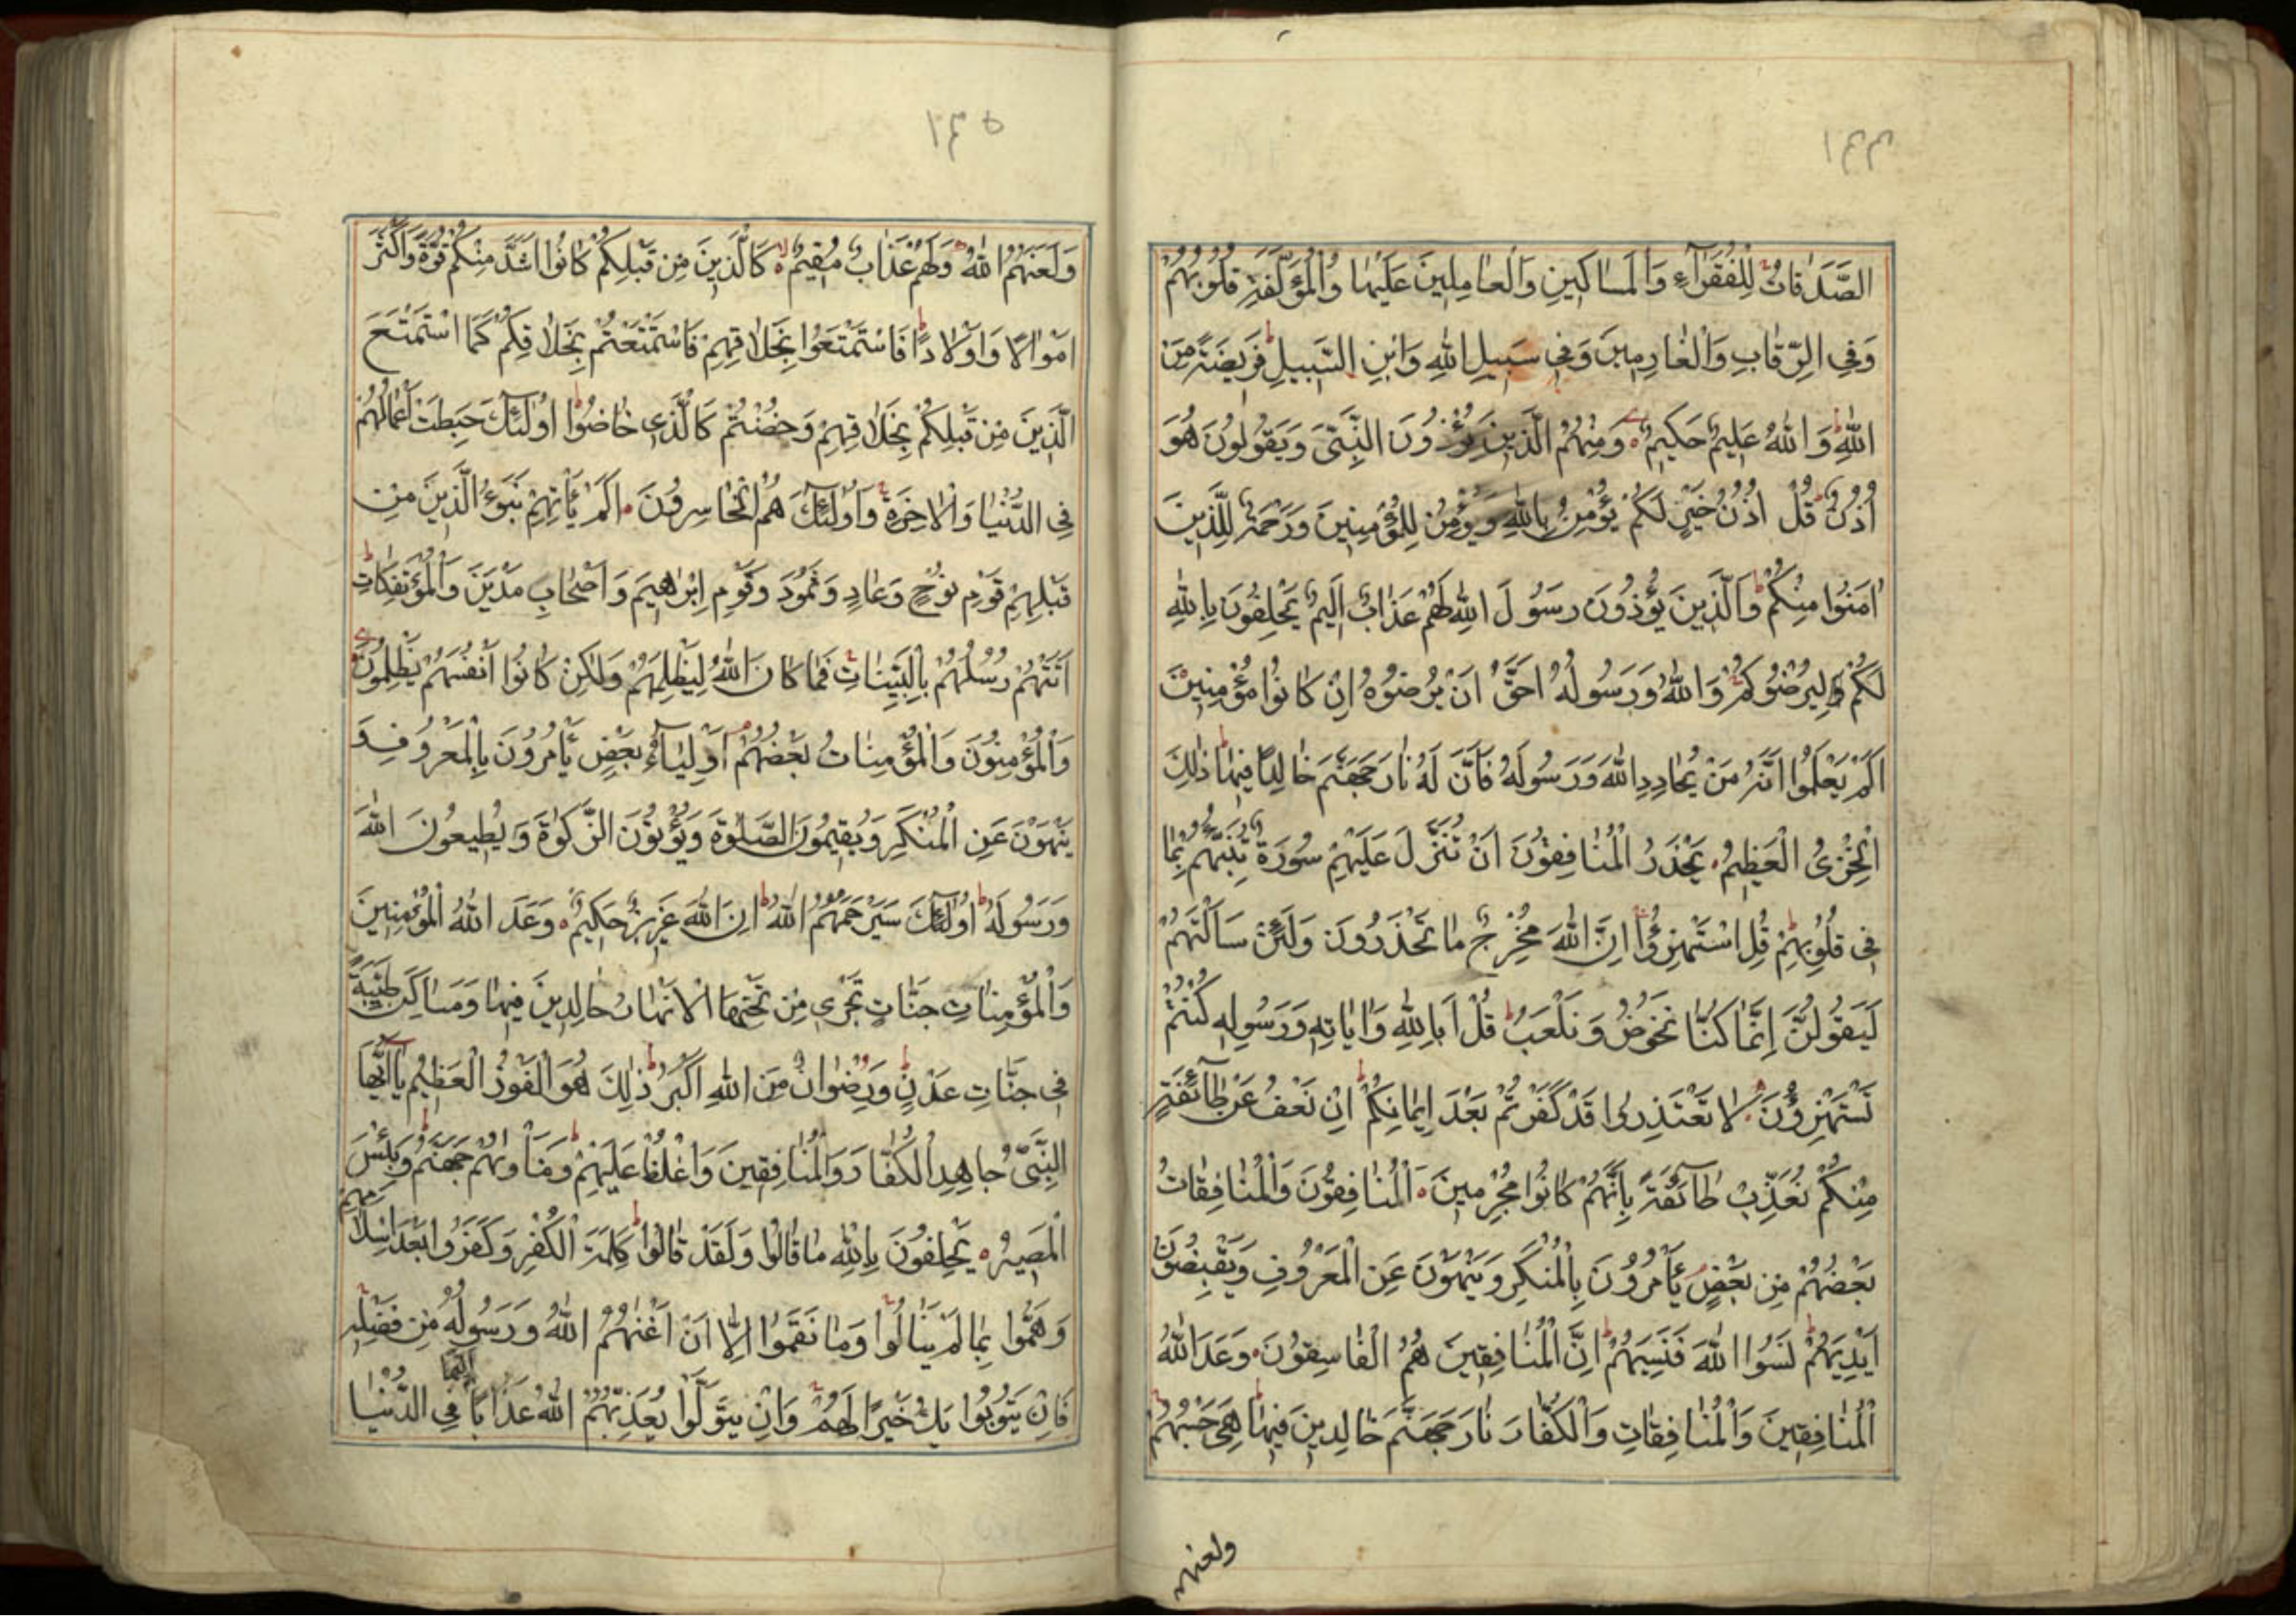 ١٤٤
الصَّدَقَاتُ لِلْفُقَرَآءِ وَالْمَسَاكِينِ وَالْعَامِلِينَ عَلَيْهَا وَالْمُؤَلَّفَةِ قُلُوبُهُمْ
وَفِي الرِّقَابِ وَالْغَارِمِينَ وَفِي سَبِيلِ اللهِ وَابْنِ السَّبِيلِ فَرِيضَةً مِنَ
اللهِ وَاللهُ عَلِيمٌ حَكِيمٌ وَمِنْهُمُ الَّذِينَ يُؤْذُونَ النَّبِيَّ وَيَقُولُونَ هُوَ
أُذُنٌ قُلْ أُذُنُ خَيْرٍ لَكُمْ يُؤْمِنُ بِاللهِ وَيُؤْمِنُ لِلْمُؤْمِنِينَ وَرَحْمَةٌ لِلَّذِينَ
اٰمَنُوا مِنْكُمْ وَالَّذِينَ يُؤْذُونَ رَسُولَ اللهِ لَهُمْ عَذَابٌ اَلِيمٌ يَحْلِفُونَ بِاللهِ
لَكُمْ لِيُرْضُوكُمْ وَاللهُ وَرَسُولُهُ اَحَقُّ اَنْ يُرْضُوهُ اِنْ كَانُوا مُؤْمِنِينَ
اَلَمْ يَعْلَمُوا اَنَّهُ مَنْ يُحَادِدِ اللهَ وَرَسُولَهُ فَاَنَّ لَهُ نَارَ جَهَنَّمَ خَالِدًا فِيهَا ذٰلِكَ
الْخِزْيُ الْعَظِيمُ يَحْذَرُ الْمُنَافِقُونَ اَنْ تُنَزَّلَ عَلَيْهِمْ سُورَةٌ تُنَبِّئُهُمْ بِمَا
فِي قُلُوبِهِمْ قُلِ اسْتَهْزِؤُا اِنَّ اللهَ مُخْرِجٌ مَا تَحْذَرُونَ وَلَئِنْ سَاَلْتَهُمْ
لَيَقُولُنَّ اِنَّمَا كُنَّا نَخُوضُ وَنَلْعَبُ قُلْ اَبِاللهِ وَاٰيَاتِهِ وَرَسُولِهِ كُنْتُمْ
تَسْتَهْزِؤُنَ لَا تَعْتَذِرُوا قَدْ كَفَرْتُمْ بَعْدَ اِيمَانِكُمْ اِنْ نَعْفُ عَنْ طَآئِفَةٍ
مِنْكُمْ نُعَذِّبْ طَآئِفَةً بِاَنَّهُمْ كَانُوا مُجْرِمِينَ اَلْمُنَافِقُونَ وَالْمُنَافِقَاتُ
بَعْضُهُمْ مِنْ بَعْضٍ يَأْمُرُونَ بِالْمُنْكَرِ وَيَنْهَوْنَ عَنِ الْمَعْرُوفِ وَيَقْبِضُونَ
اَيْدِيَهُمْ نَسُوا اللهَ فَنَسِيَهُمْ اِنَّ الْمُنَافِقِينَ هُمُ الْفَاسِقُونَ وَعَدَ اللهُ
الْمُنَافِقِينَ وَالْمُنَافِقَاتِ وَالْكُفَّارَ نَارَ جَهَنَّمَ خَالِدِينَ فِيهَا هِيَ حَسْبُهُمْ
ولعنهم
١٤٥
وَلَعَنَهُمُ اللهُ وَلَهُمْ عَذَابٌ مُقِيمٌ كَالَّذِينَ مِنْ قَبْلِكُمْ كَانُوا اَشَدَّ مِنْكُمْ قُوَّةً وَاَكْثَرَ
اَمْوَالًا وَاَوْلَادًا فَاسْتَمْتَعُوا بِخَلَاقِهِمْ فَاسْتَمْتَعْتُمْ بِخَلَاقِكُمْ كَمَا اسْتَمْتَعَ
الَّذِينَ مِنْ قَبْلِكُمْ بِخَلَاقِهِمْ وَخُضْتُمْ كَالَّذِي خَاضُوا اُولٰئِكَ حَبِطَتْ اَعْمَالُهُمْ
فِي الدُّنْيَا وَالْاٰخِرَةِ وَاُولٰئِكَ هُمُ الْخَاسِرُونَ اَلَمْ يَأْتِهِمْ نَبَؤُ الَّذِينَ مِنْ
قَبْلِهِمْ قَوْمِ نُوحٍ وَعَادٍ وَثَمُودَ وَقَوْمِ اِبْرٰهِيمَ وَاَصْحَابِ مَدْيَنَ وَالْمُؤْتَفِكَاتِ
اَتَتْهُمْ رُسُلُهُمْ بِالْبَيِّنَاتِ فَمَا كَانَ اللهُ لِيَظْلِمَهُمْ وَلٰكِنْ كَانُوا اَنْفُسَهُمْ يَظْلِمُونَ
وَالْمُؤْمِنُونَ وَالْمُؤْمِنَاتُ بَعْضُهُمْ اَوْلِيَآءُ بَعْضٍ يَأْمُرُونَ بِالْمَعْرُوفِ وَ
يَنْهَوْنَ عَنِ الْمُنْكَرِ وَيُقِيمُونَ الصَّلٰوةَ وَيُؤْتُونَ الزَّكٰوةَ وَيُطِيعُونَ اللهَ
وَرَسُولَهُ اُولٰئِكَ سَيَرْحَمُهُمُ اللهُ اِنَّ اللهَ عَزِيزٌ حَكِيمٌ وَعَدَ اللهُ الْمُؤْمِنِينَ
وَالْمُؤْمِنَاتِ جَنَّاتٍ تَجْرِي مِنْ تَحْتِهَا الْاَنْهَارُ خَالِدِينَ فِيهَا وَمَسَاكِنَ طَيِّبَةً
فِي جَنَّاتِ عَدْنٍ وَرِضْوَانٌ مِنَ اللهِ اَكْبَرُ ذٰلِكَ هُوَ الْفَوْزُ الْعَظِيمُ يَآ اَيُّهَا
النَّبِيُّ جَاهِدِ الْكُفَّارَ وَالْمُنَافِقِينَ وَاغْلُظْ عَلَيْهِمْ وَمَأْوٰيهُمْ جَهَنَّمُ وَبِئْسَ
الْمَصِيرُ يَحْلِفُونَ بِاللهِ مَا قَالُوا وَلَقَدْ قَالُوا كَلِمَةَ الْكُفْرِ وَكَفَرُوا بَعْدَ اِسْلَامِهِمْ
وَهَمُّوا بِمَا لَمْ يَنَالُوا وَمَا نَقَمُوا اِلَّا اَنْ اَغْنٰهُمُ اللهُ وَرَسُولُهُ مِنْ فَضْلِهِ
فَاِنْ يَتُوبُوا يَكُ خَيْرًا لَهُمْ وَاِنْ يَتَوَلَّوْا يُعَذِّبْهُمُ اللهُ عَذَابًا اَلِيمًا فِي الدُّنْيَا